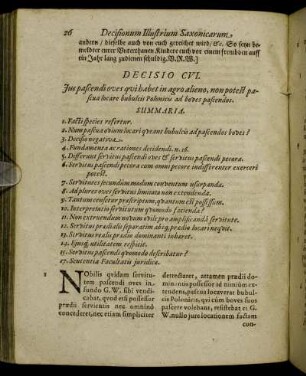 26 Decisionum Illustrium Saxonicarum,
andern / dieselbe auch von euch gereichet wird / &c. So seyn be-
meldter eurer Unterthanen Kindere euch vor einem frembden auff
ein Jahr lang zudienen schuldig. V.R.W.]
DECISIO CVI.
Jus pascendi oves qvi habet in agro alieno, non potest pa-
scua locare bubulcis Polonicis ad boves pascendos.
SUMMARIA.
1. Facti species refertur.
2. Num pascua ovium locari qveant bubulcis ad pascendos boves?
3. Decisio negativa.
4. Fundamenta ac rationes decidendi. n. 16.
5. Differunt servitus pascendi oves & servitus pascendi pecora.
6. Servitus pascendi pecora cum omni pecore indifferenter exerceri
potest.
7. Servitutes secundum modum conventum usurpanda.
8. Ad plures oves servitus limitata non extendenda.
9. Tantum censetur præscriptum, qvantum est possessum.
10. Interpretatio servitutum qvomodo facienda?
11. Non extruendum novum ovile pro amplificandâ servitute.
12. Servitus prædialis separatim absq; prædio locari neqvit.
13. Servitus realis prædio dominanti inhæret.
14. Ejusq; utilitatem respicit.
15. Servitus pascendi qvomodo describatur?
17. Sententia Facultatis juridicæ.
1 NObilis quidam servitu-
tem pascendi oves in
fundo G. W. sibi vendi-
cabat, quod etsi possessor
prædii servientis non omninò
concederet, nec etiam simpliciter
detrectaret, attamen prædii do-
minantis possessor id omnium ex-
tendens, pascua locaverat bubul-
cis Polonicis, qui cum boves suos
pascere volebant, resistebat ei G.
W. nullo jure locationem factam
con-